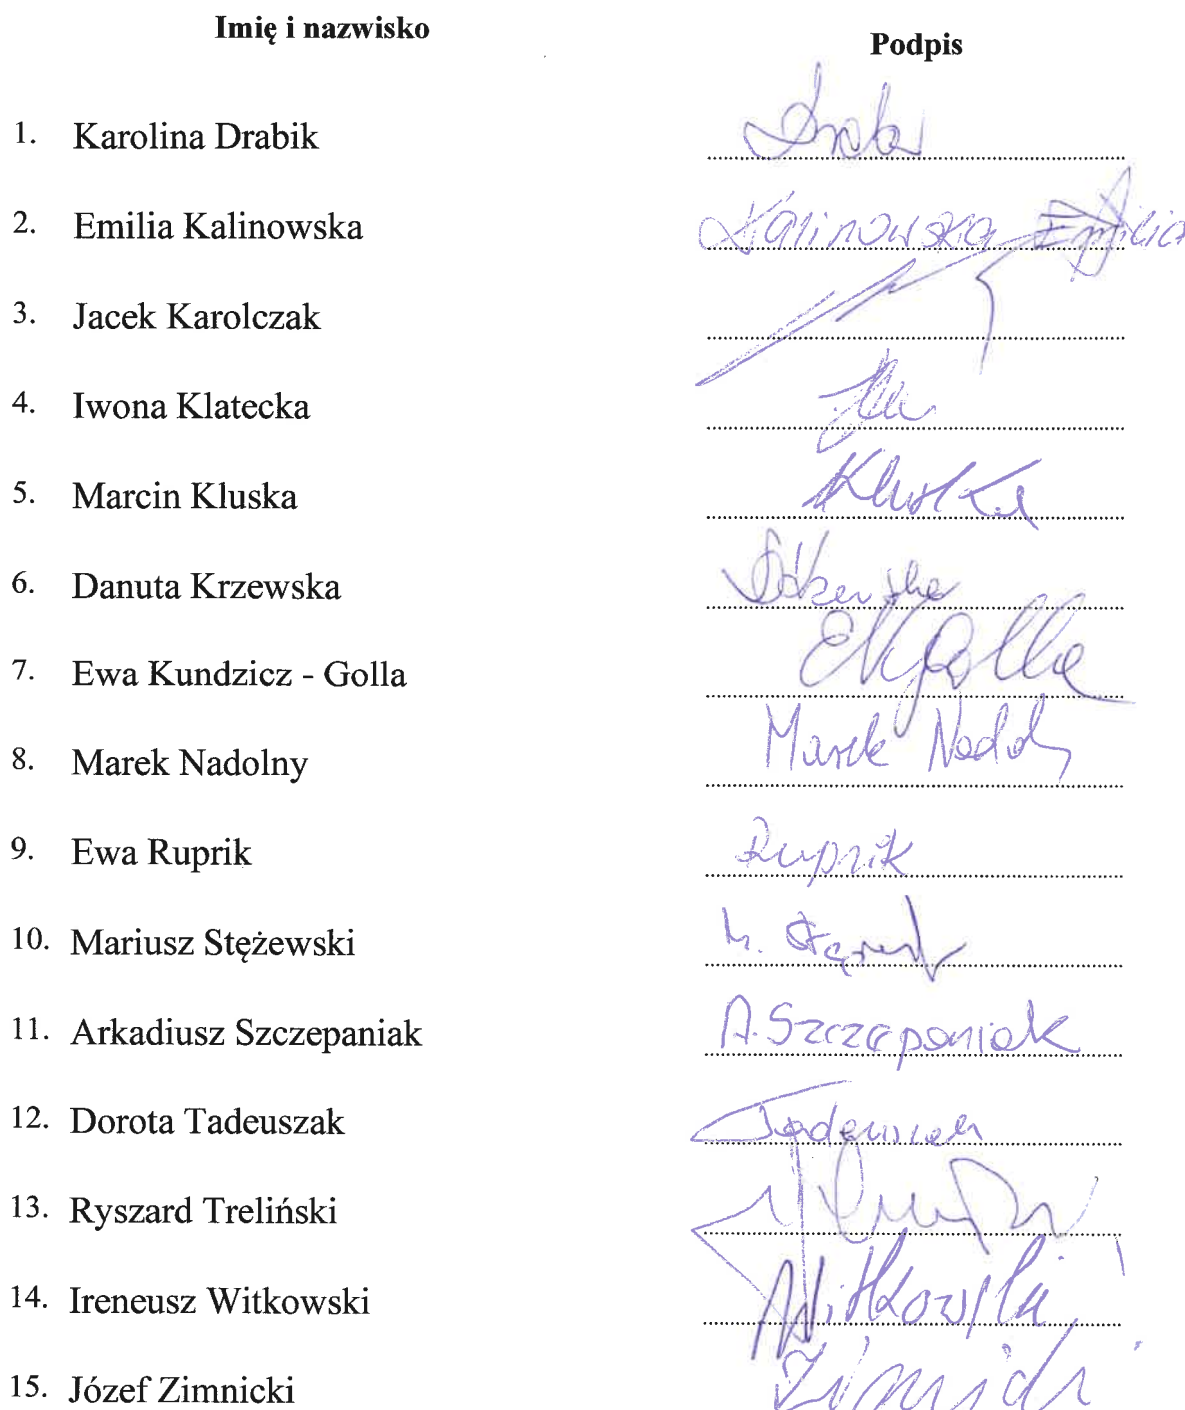 Imię i nazwisko
Podpis
1. Karolina Drabik
2. Emilia Kalinowska Kalinowska Emilia
3. Jacek Karolczak
4. Iwona Klatecka
5. Marcin Kluska Kluska
6. Danuta Krzewska
7. Ewa Kundzicz - Golla EKGolla
8. Marek Nadolny Marek Nadolny
9. Ewa Ruprik Ruprik
10. Mariusz Stężewski
11. Arkadiusz Szczepaniak A. Szczepaniak
12. Dorota Tadeuszak Tadeuszak
13. Ryszard Treliński
14. Ireneusz Witkowski Witkowski
15. Józef Zimnicki